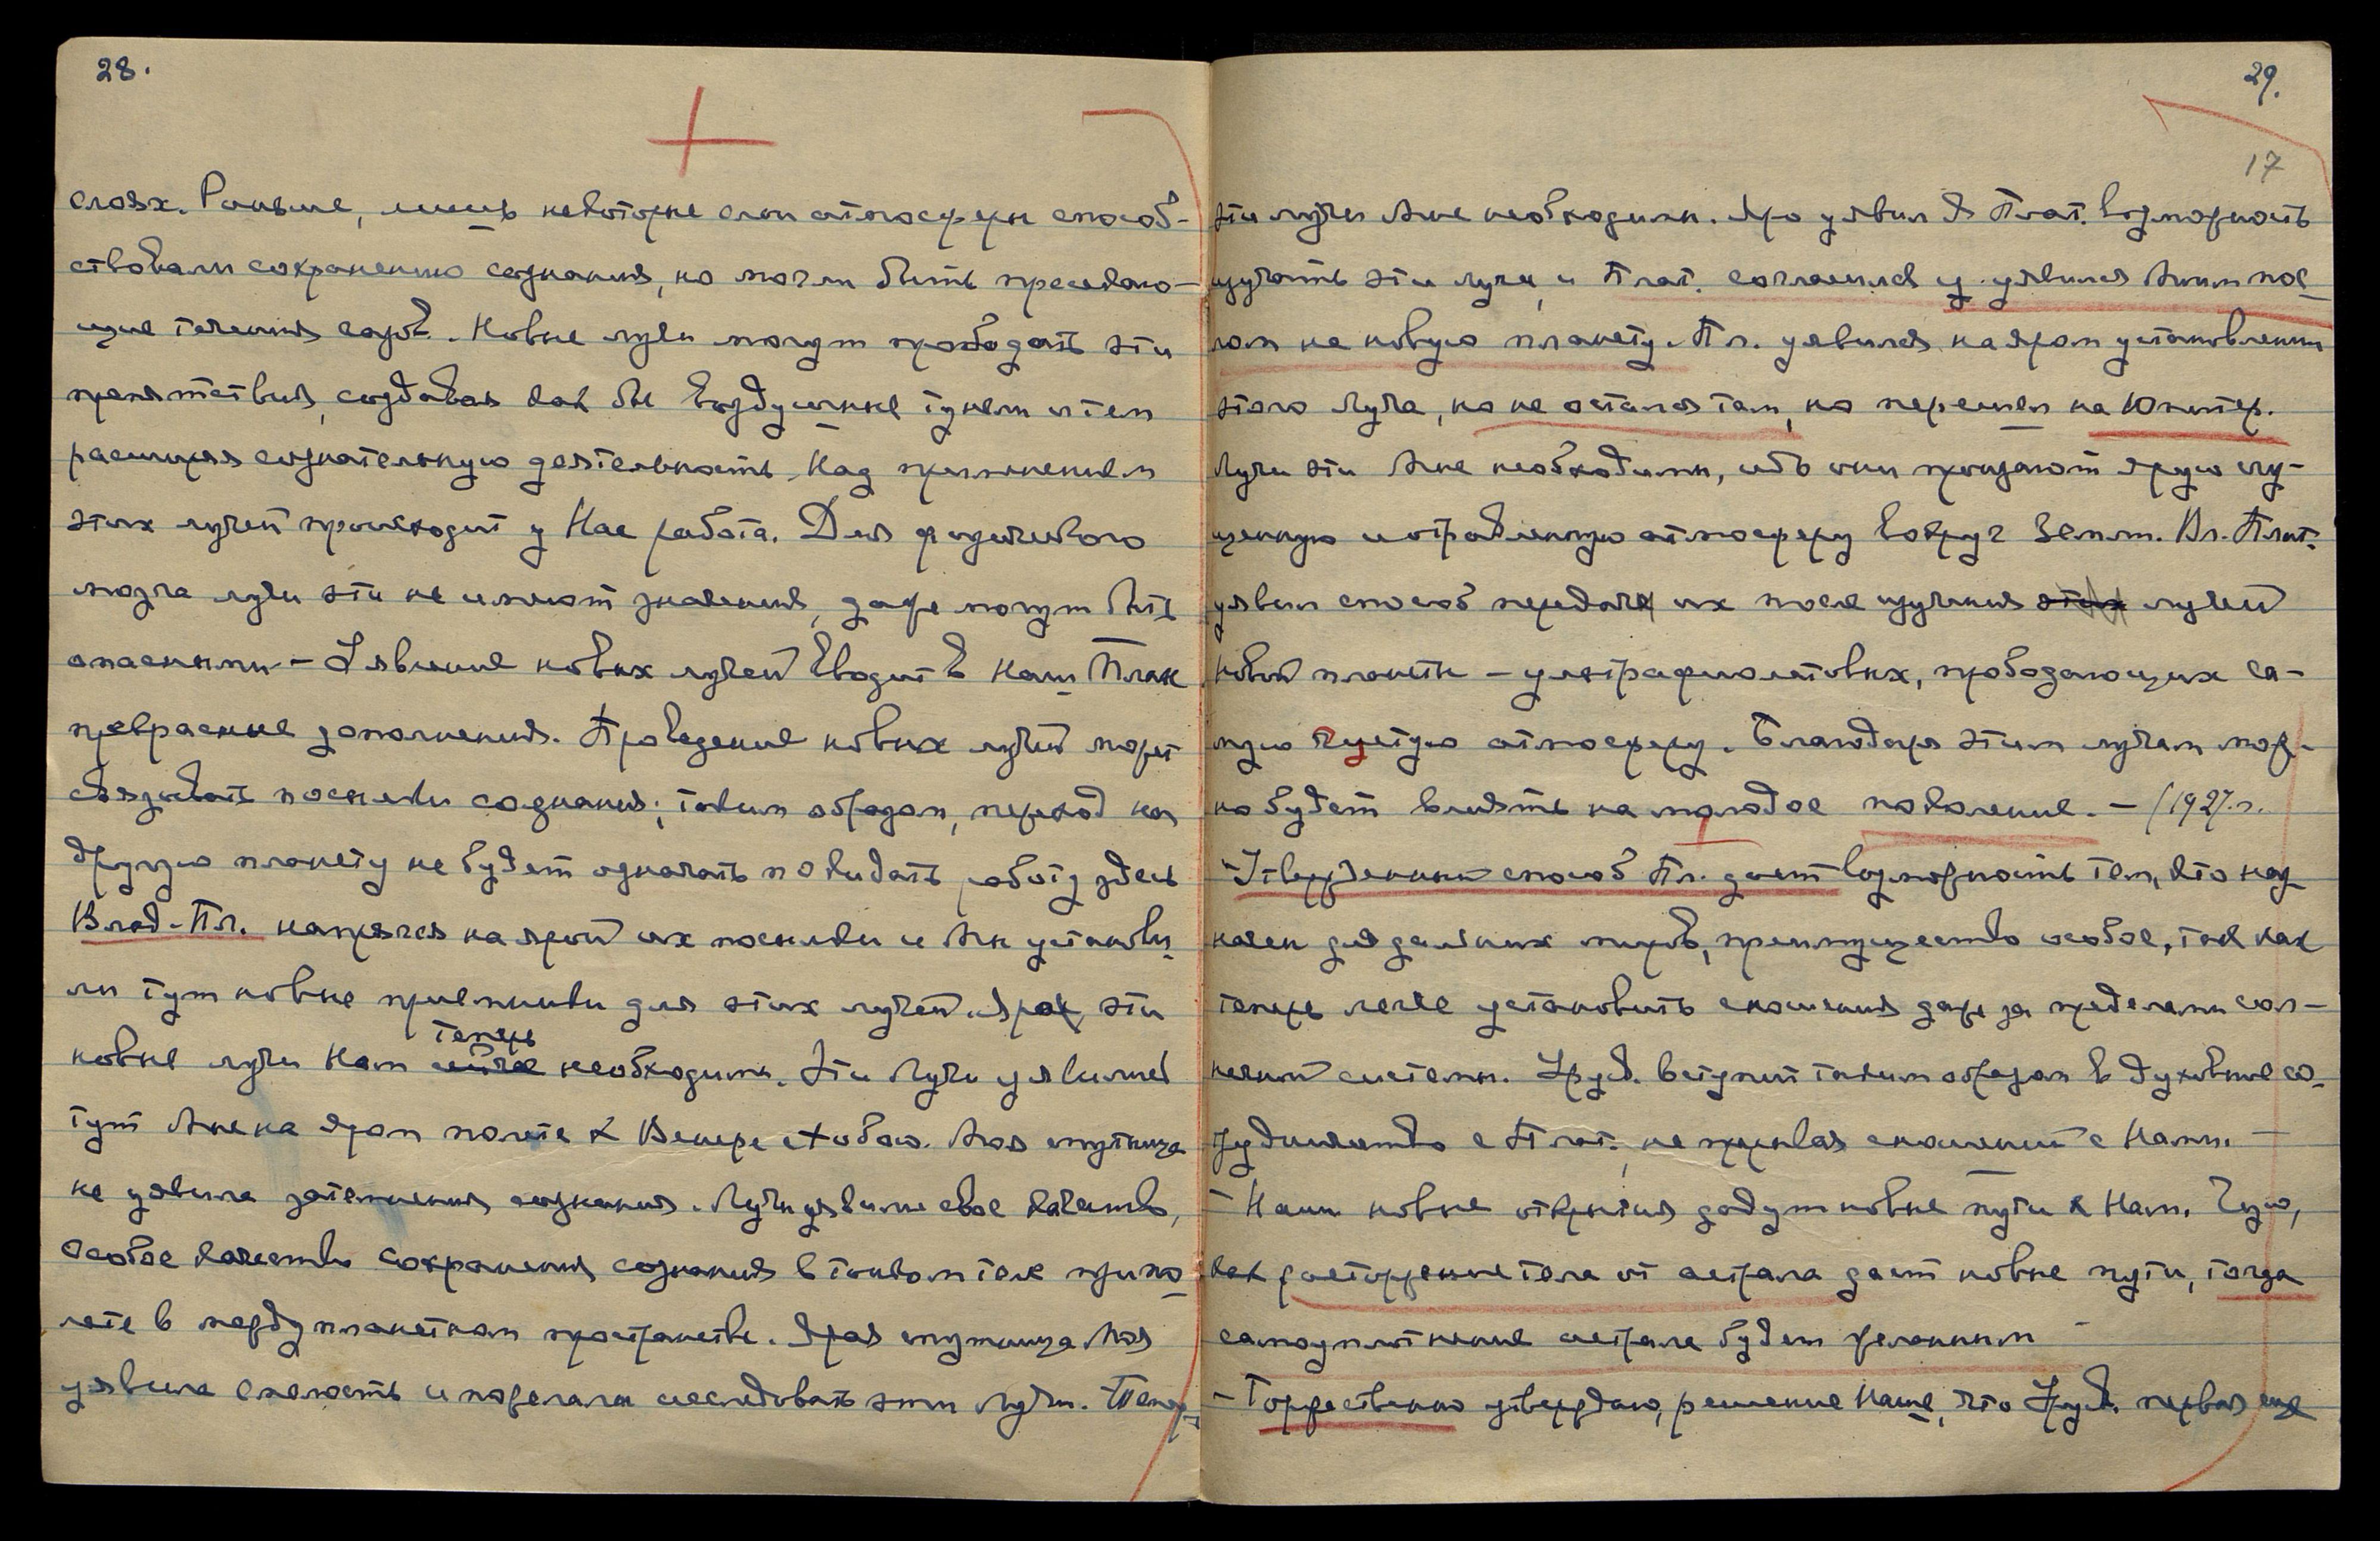 28.
слоях. Раньше, лишь некоторые слои атмосферы способ-
ствовали сохранению сознания, но могли быть пресекаю-
щие течения вод. Новые лучи могут прободать эти
препятствия, создавая как бы воздушные тунели и тем
расширяя сознательную деятельность. Над применением
этих лучей происходит у Нас работа. Для физического
мозга лучи эти не имеют значения, даже могут быть
опасными – Явление новых лучей вводит в Наш План
прекрасные дополнения. Проведение новых лучей может
связывать посылки сознания; таким образом, переход на
другую планету не будет означать покидать работу здесь
Влад. Пл. напрягся на ярой их посылки и Мы установи-
ли тут новые приемники для этих лучей. Яро эти
теперь
новые лучи Нам необходимы. Эти Лучи уявились
тут Мне на яром полете к Венере с тобою. Моя спутница
не уявила затемнения сознания. Лучи уявили свое качество,
особое качество сохранения сознания в тонком теле при по-
лете в междупланетном пространстве. Ярая спутница Моя
уявила смелость и пожелала исследовать эти Лучи. Тепер
29.
17
эти лучи Мне необходимы. Яро уявил Я Плат. возможность
изучать эти лучи, и Плат. согласился и уявился Моим пос-
лом на новую планету. Пл. уявился на яром установлении
этого Луча, но не остался там, но перешел на Юпитер.
Лучи эти Мне необходимы, ибо они пронзают ярую сгу-
щенную и отравленную атмосферу вокруг Земли. Вл. Плат.
уявил способ передачи их после изучения этих лучей
новой планеты – ультрафиолетовых, прободающих са-
мую густую атмосферу. Благодаря этим лучам мож-
но будет влиять на молодое поколение. – (1927.г.
– Утвержденный способ Пл. дает возможность тем, кто наз
начен для дальних миров, преимущество особое, так как
теперь легче установить сношения даже за пределами сол-
нечной системы. Урус. вступит таким образом в духовное со-
трудничество с Плат., не прерывая сношений с Нами. –
– Наши новые открытия дадут новые пути к Нам. Чую,
как расторжение тела от астрала дает новые пути, тогда
самоуплотнение астрала будет желанным –
– Торжественно утверждаю, решение Наше, что Урус. первая еще